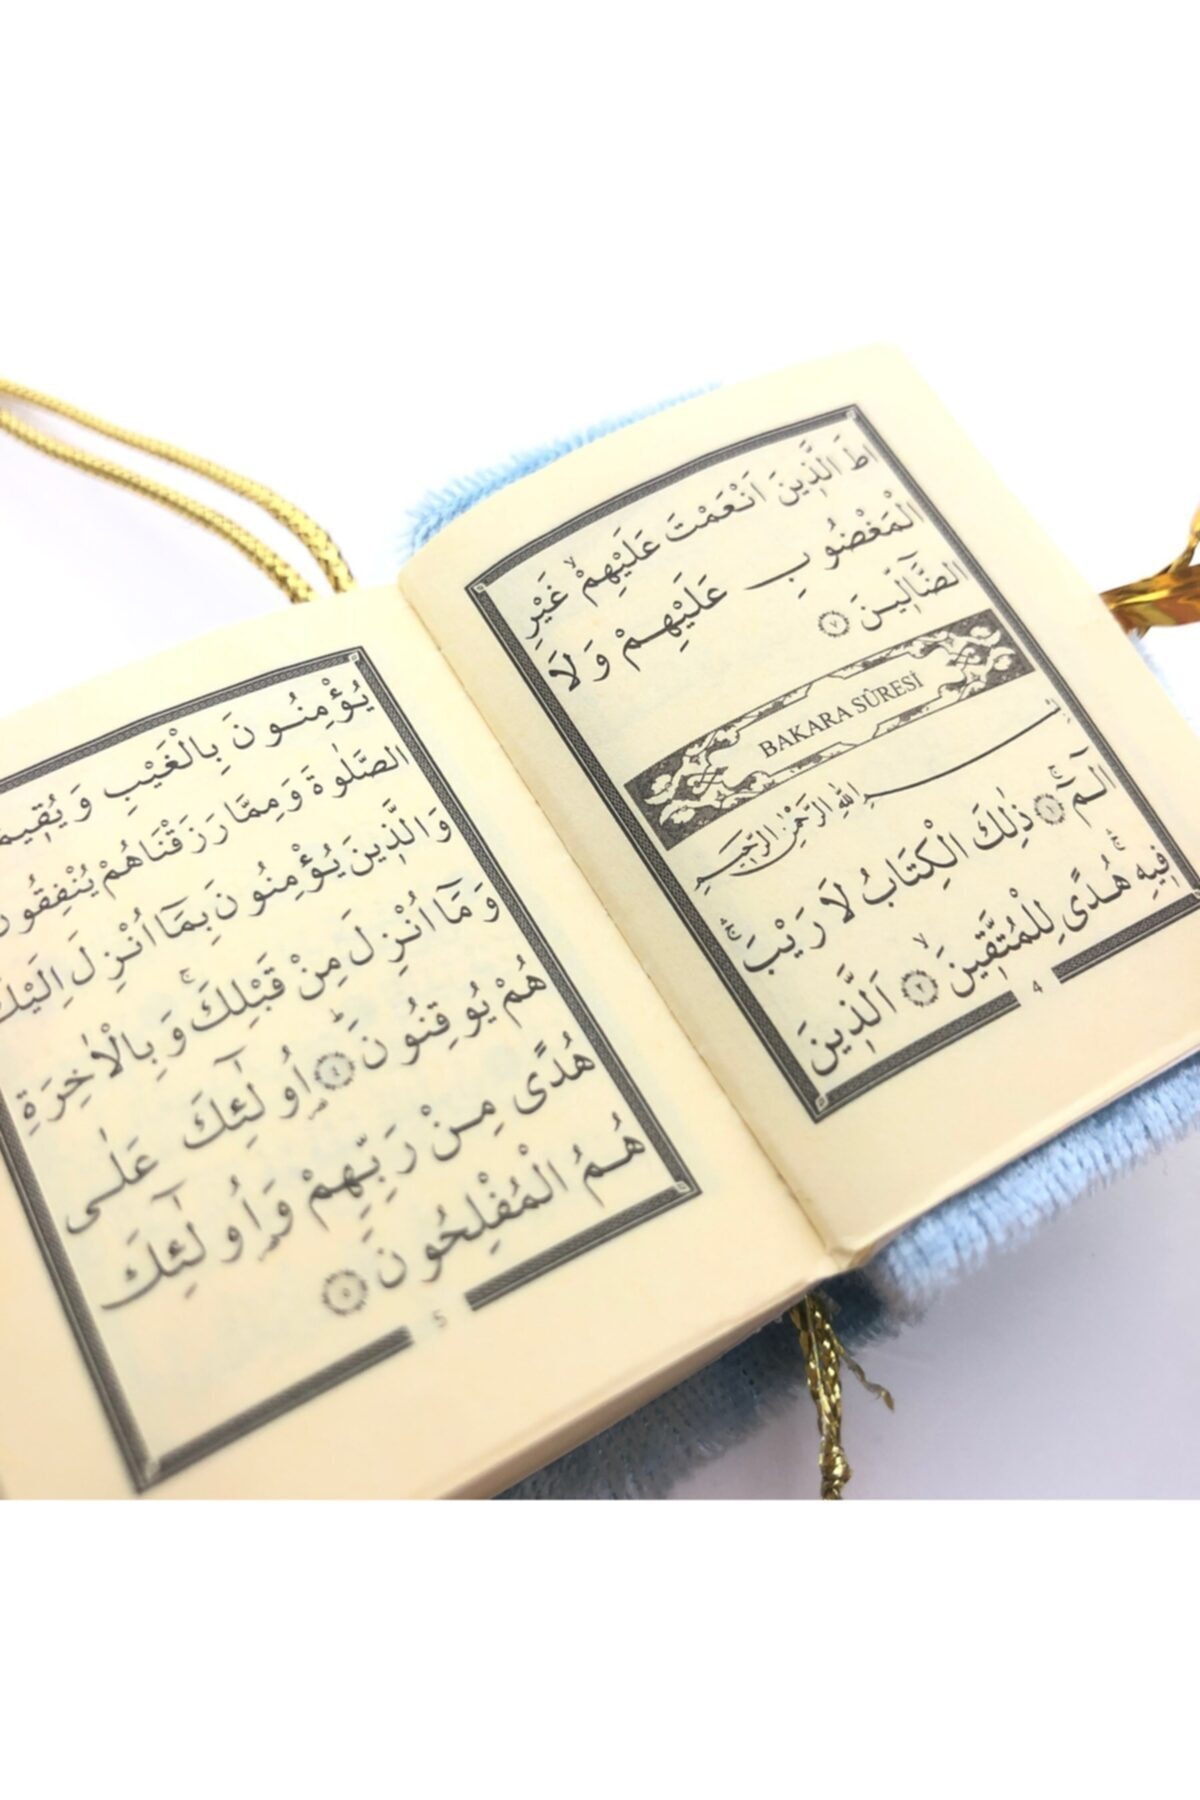 طَ الَّذ۪ينَ اَنْعَمْتَ عَلَيْهِمْۙ غَيْرِ
الْمَغْضُوبِ عَلَيْهِمْ وَلَا
الضَّٓالّ۪ينَ ﴿٧﴾
BAKARA SÛRESİ
بِسْمِ اللّٰهِ الرَّحْمٰنِ الرَّح۪يمِ
الٓمٓۚ ﴿١﴾ ذٰلِكَ الْكِتَابُ لَا رَيْبَۚ
ف۪يهِۚ هُدًى لِلْمُتَّق۪ينَۙ ﴿٢﴾ اَلَّذ۪ينَ
4
يُؤْمِنُونَ بِالْغَيْبِ وَيُق۪يمُ
الصَّلٰوةَ وَمِمَّا رَزَقْنَاهُمْ يُنْفِقُونَ
وَالَّذ۪ينَ يُؤْمِنُونَ بِمَٓا اُنْزِلَ اِلَيْكَ
وَمَٓا اُنْزِلَ مِنْ قَبْلِكَۚ وَبِالْاٰخِرَةِ
هُمْ يُوقِنُونَۜ ﴿٤﴾ اُو۬لٰٓئِكَ عَلٰى
هُدًى مِنْ رَبِّهِمْ وَاُو۬لٰٓئِكَ
هُمُ الْمُفْلِحُونَ ﴿٥﴾
5